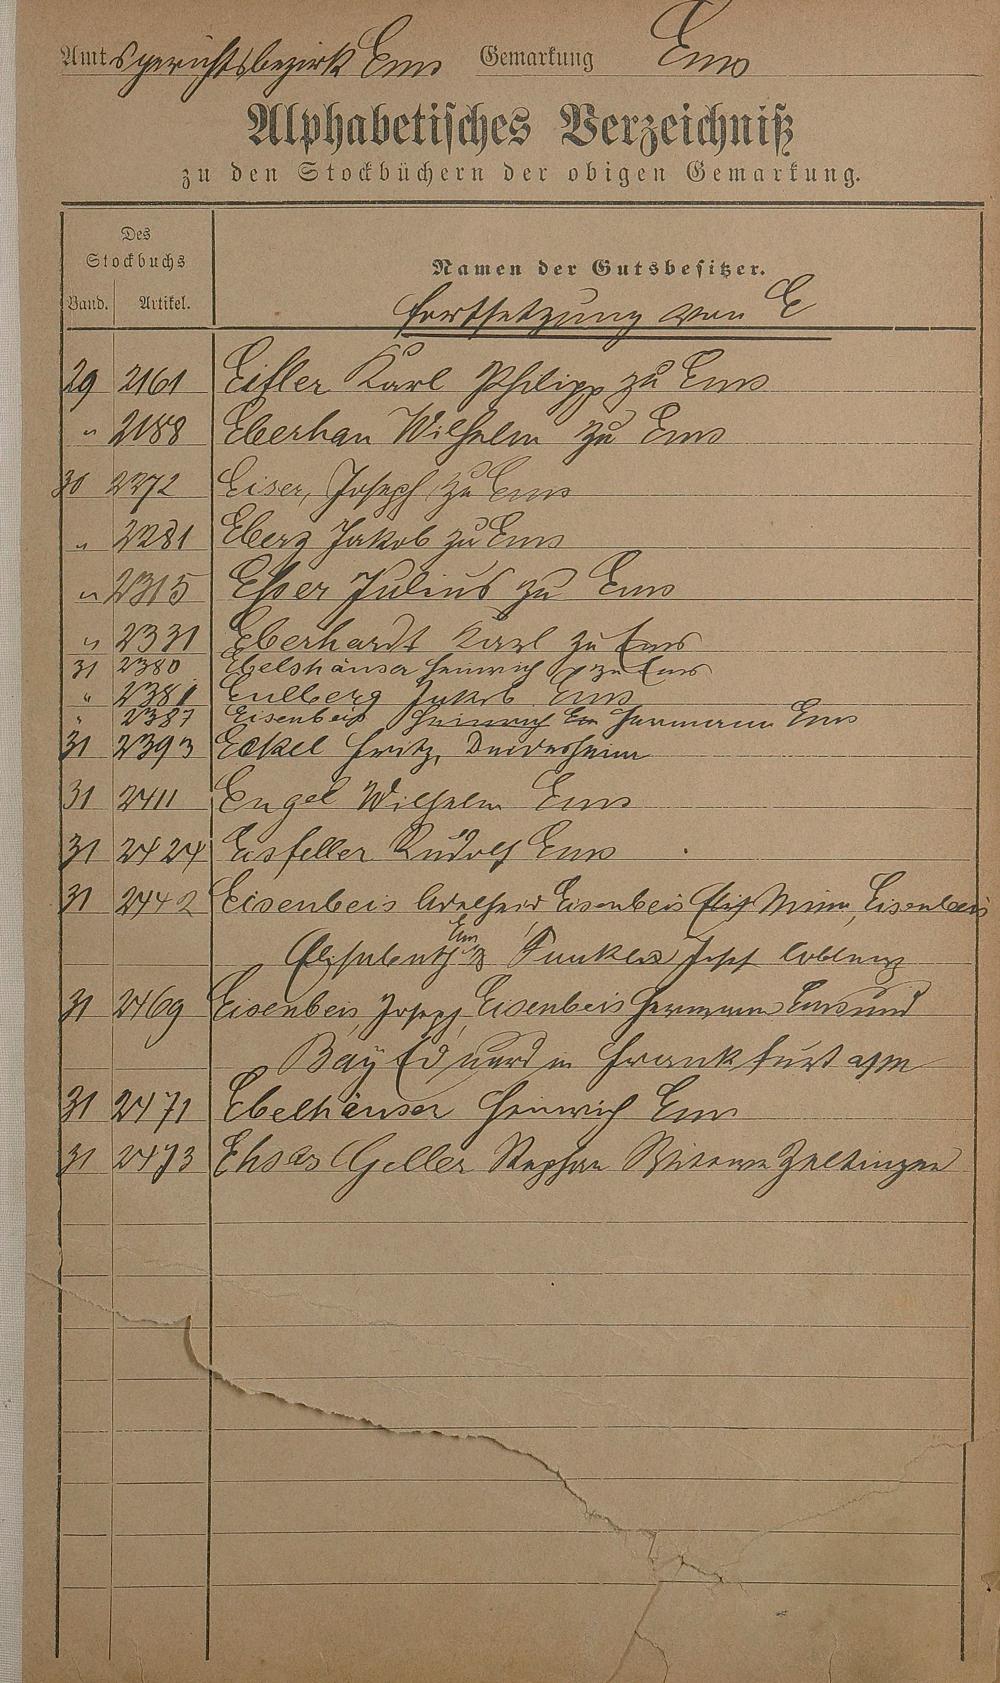 Amtsgerichtsbezirk Ems Gemarkung Ems
Alphabetisches Verzeichniß
zu den Stockbüchern der obigen Gemarkung.
Des Stockbuchs
Namen der Gutsbesitzer.
Band. Artikel.
Fortsetzung von E
29 2161 Eifler Karl Philipp zu Ems
" 2188 Eberhan Wilhelm zu Ems
30 2272 Eiser, Joseph zu Ems
" 2281 Eberz Jakob zu Ems
" 2315 Esser Julius zu Ems
" 2331 Eberhardt Karl zu Ems
31 2380 Ebelshäuser Heinrich zu Ems
" 2381 Eulberg Jakob Ems
" 2387 Eisenbeis Heinrich Em Hermann Ems
31 2393 Eckel Fritz, Deidesheim
31 2411 Engel Wilhelm Ems
31 2424 Eisfeller Rudolf Ems
31 2442 Eisenbeis Adelheid Eisenbeis Minna, Eisenbeis
Elisabeth Ems Funkes Josef Coblenz
31 2469 Eisenbeis, Joseph, Eisenbeis Hermann Ems und
Bay Eduard in Frankfurt a/M
31 2471 Ebelhäuser Heinrich Ems
31 2473 Ehses Geller Stephan Witewe Zeltingen